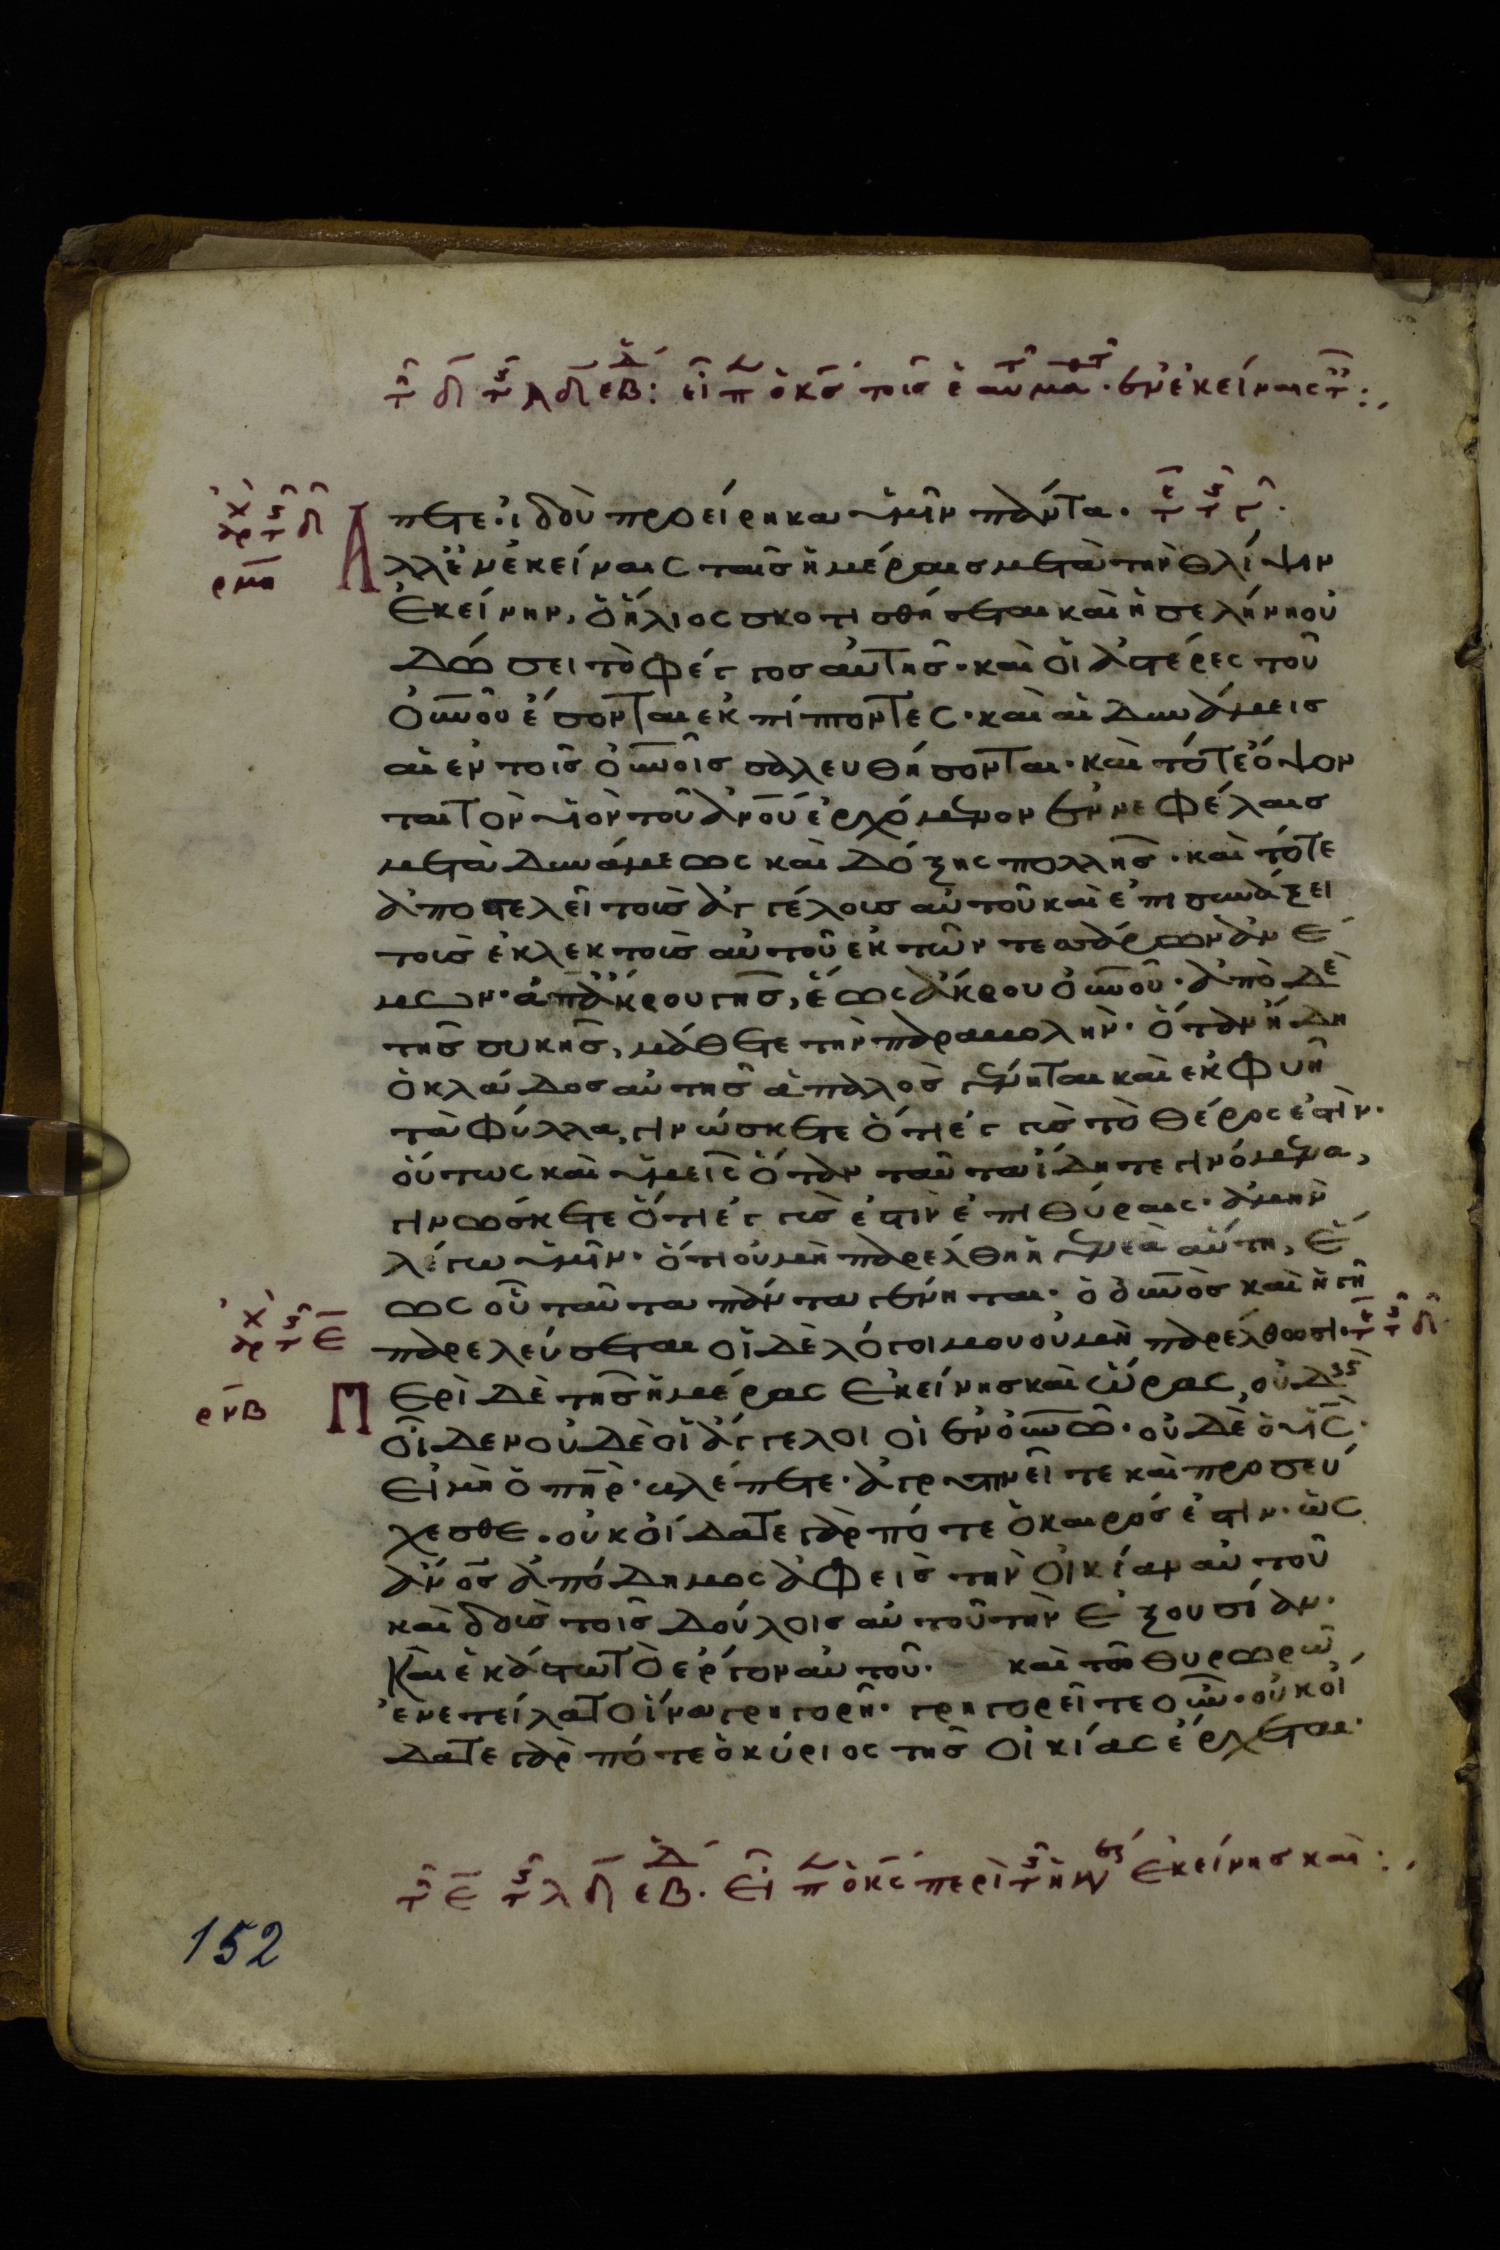 πετε· ἰδοὺ προείρηκα ὑμῖν πάντα·
ρμα
Ἀλλ' ἐν ἐκείναις ταῖς ἡμέραις μετὰ τὴν θλίψιν
ἐκείνην, ὁ ἥλιος σκοτισθήσεται καὶ ἡ σελήνη οὐ
δώσει τὸ φέγγος αὐτῆς· καὶ οἱ ἀστέρες τοῦ
οὐνοῦ ἔσονται ἐκπίπτοντες· καὶ αἱ δυνάμεις
αἱ ἐν τοῖς οὐνοῖς σαλευθήσονται· καὶ τότε ὄψον
ται τὸν υἱὸν τοῦ ἀνοῦ ἐρχόμενον ἐν νεφέλαις
μετὰ δυνάμεως καὶ δόξης πολλῆς· καὶ τότε
ἀποστελεῖ τοὺς ἀγγέλους αὐτοῦ καὶ ἐπισυνάξει
τοὺς ἐκλεκτοὺς αὐτοῦ ἐκ τῶν τεσσάρων ἀνέ
μων· ἀπ' ἄκρου γῆς, ἕως ἄκρου οὐνοῦ· ἀπὸ δὲ
τῆς συκῆς, μάθετε τὴν παραβολήν· ὅταν ἤδη
ὁ κλάδος αὐτῆς ἁπαλὸς γένηται καὶ ἐκφυῆ
τὰ φύλλα, γινώσκετε ὅτι ἐγγὺς τὸ θέρος ἐστίν·
οὕτως καὶ ὑμεῖς ὅταν ταῦτα ἴδητε γινόμενα,
γινώσκετε ὅτι ἐγγὺς ἐστὶν ἐπὶ θύραις· ἀμὴν
λέγω ὑμῖν· ὅτι οὐ μὴ παρέλθη ἡ γενεὰ αὕτη, ἕ
ως οὗ ταῦτα πάντα γένηται· ὁ οὐνὸς καὶ ἡ γῆ
παρελεύσεται οἱ δὲ λόγοι μου οὐ μὴ παρέλθωσι·
ρνβ
Περὶ δὲ τῆς ἡμέρας ἐκείνης καὶ ὥρας, οὐδεὶς
οἶδεν οὐδὲ οἱ ἄγγελοι οἱ ἐν οὐνῶ· οὐδὲ ὁ υἱς·
εἰ μὴ ὁ πηρ· βλέπετε· ἀγρυπνεῖτε καὶ προσεύ
χεσθε· οὐκ οἴδατε γὰρ πότε ὁ καιρός ἐστιν· ὡς
ἀνος ἀπόδημος ἀφεὶς τὴν οἰκίαν αὐτοῦ
καὶ δοὺς τοῖς δούλοις αὐτοῦ τὴν ἐξουσίαν·
καὶ ἑκάστω τὸ ἔργον αὐτοῦ· καὶ τῶ θυρωρῶ
ἐνετείλατο ἵνα γρηγορῆ· γρηγορεῖτε οὖν· οὐκ οἴ
δατε γὰρ πότε ὁ κύριος τῆς οἰκίας ἔρχεται·
152